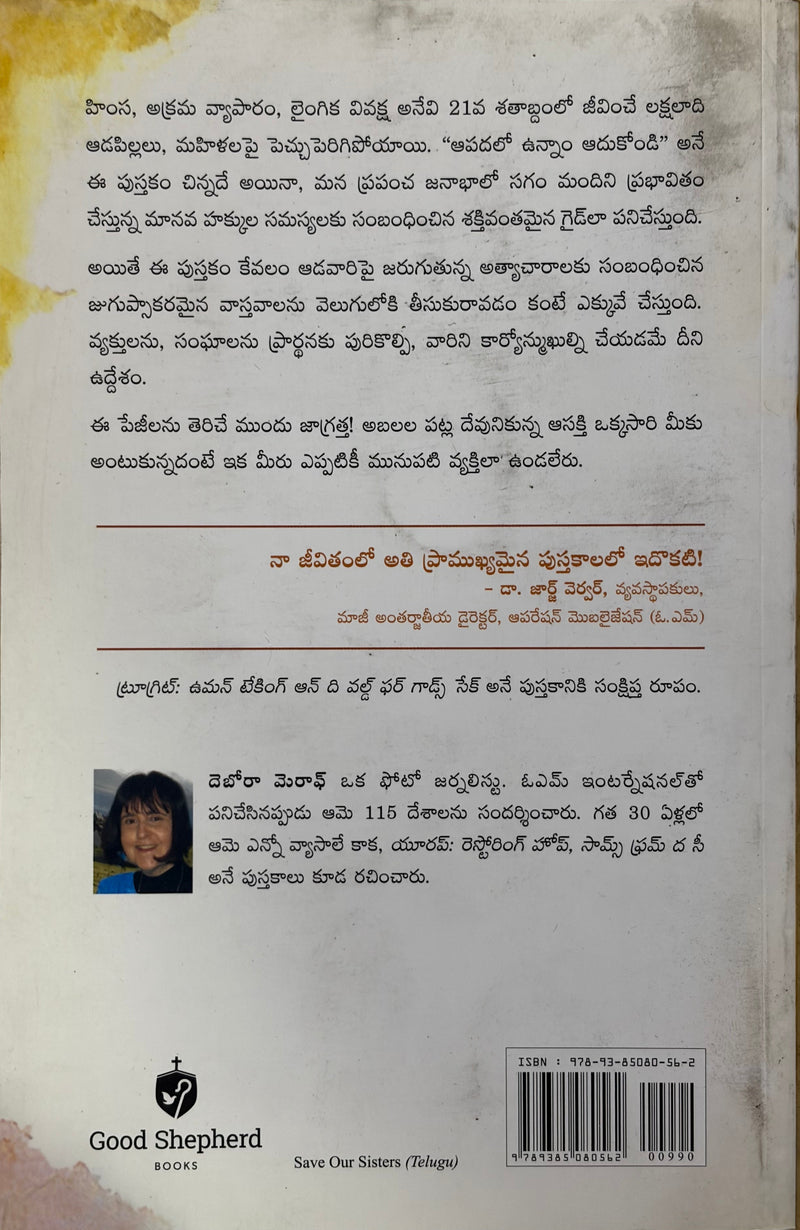 హింస, అక్రమ వ్యాపారం, లైంగిక వివక్ష అనేవి 21వ శతాబ్దంలో జీవించే లక్షలాది
ఆడపిల్లలు, మహిళలపై పెచ్చుపెరిగిపోయాయి. “ఆపదలో ఉన్నాం ఆదుకోండి” అనే
ఈ పుస్తకం చిన్నదే అయినా, మన ప్రపంచ జనాభాలో సగం మందిని ప్రభావితం
చేస్తున్న మానవ హక్కుల సమస్యలకు సంబంధించిన శక్తివంతమైన గైడ్‌లా పనిచేస్తుంది.
అయితే ఈ పుస్తకం కేవలం ఆడవారిపై జరుగుతున్న అత్యాచారాలకు సంబంధించిన
జుగుప్సాకరమైన వాస్తవాలను వెలుగులోకి తీసుకురావడం కంటే ఎక్కువే చేస్తుంది.
వ్యక్తులను, సంఘాలను ప్రార్థనకు పురికొల్పి, వారిని కార్యోన్ముఖుల్ని చేయడమే దీని
ఉద్దేశం.
ఈ పేజీలను తెరిచే ముందు జాగ్రత్త! అబలల పట్ల దేవునికున్న ఆసక్తి ఒక్కసారి మీకు
అంటుకున్నదంటే ఇక మీరు ఎప్పటికీ మునుపటి వ్యక్తిలా ఉండలేరు.
నా జీవితంలో అతి ప్రాముఖ్యమైన పుస్తకాలలో ఇదొకటి!
- డా. జార్జ్ వెర్వర్, వ్యవస్థాపకులు,
మాజీ అంతర్జాతీయ డైరెక్టర్, ఆపరేషన్ మొబలైజేషన్ (ఓ.ఎమ్)
ట్రూగ్రిట్: ఉమన్ టేకింగ్ ఆన్ ది వల్డ్ ఫర్ గాడ్స్ సేక్ అనే పుస్తకానికి సంక్షిప్త రూపం.
దెబోరా మెరాఫ్ ఒక ఫోటో జర్నలిస్టు. ఓఎమ్ ఇంటర్నేషనల్‌తో
పనిచేసినప్పుడు ఆమె 115 దేశాలను సందర్శించారు. గత 30 ఏళ్లలో
ఆమె ఎన్నో వ్యాసాలే కాక, యూరప్: రెస్టోరింగ్ హోప్, సామ్స్ ఫ్రమ్ ద సీ
అనే పుస్తకాలు కూడ రచించారు.
Good Shepherd
BOOKS
Save Our Sisters (Telugu)
ISBN : 978-93-85080-56-2
9 789385 080562
00990